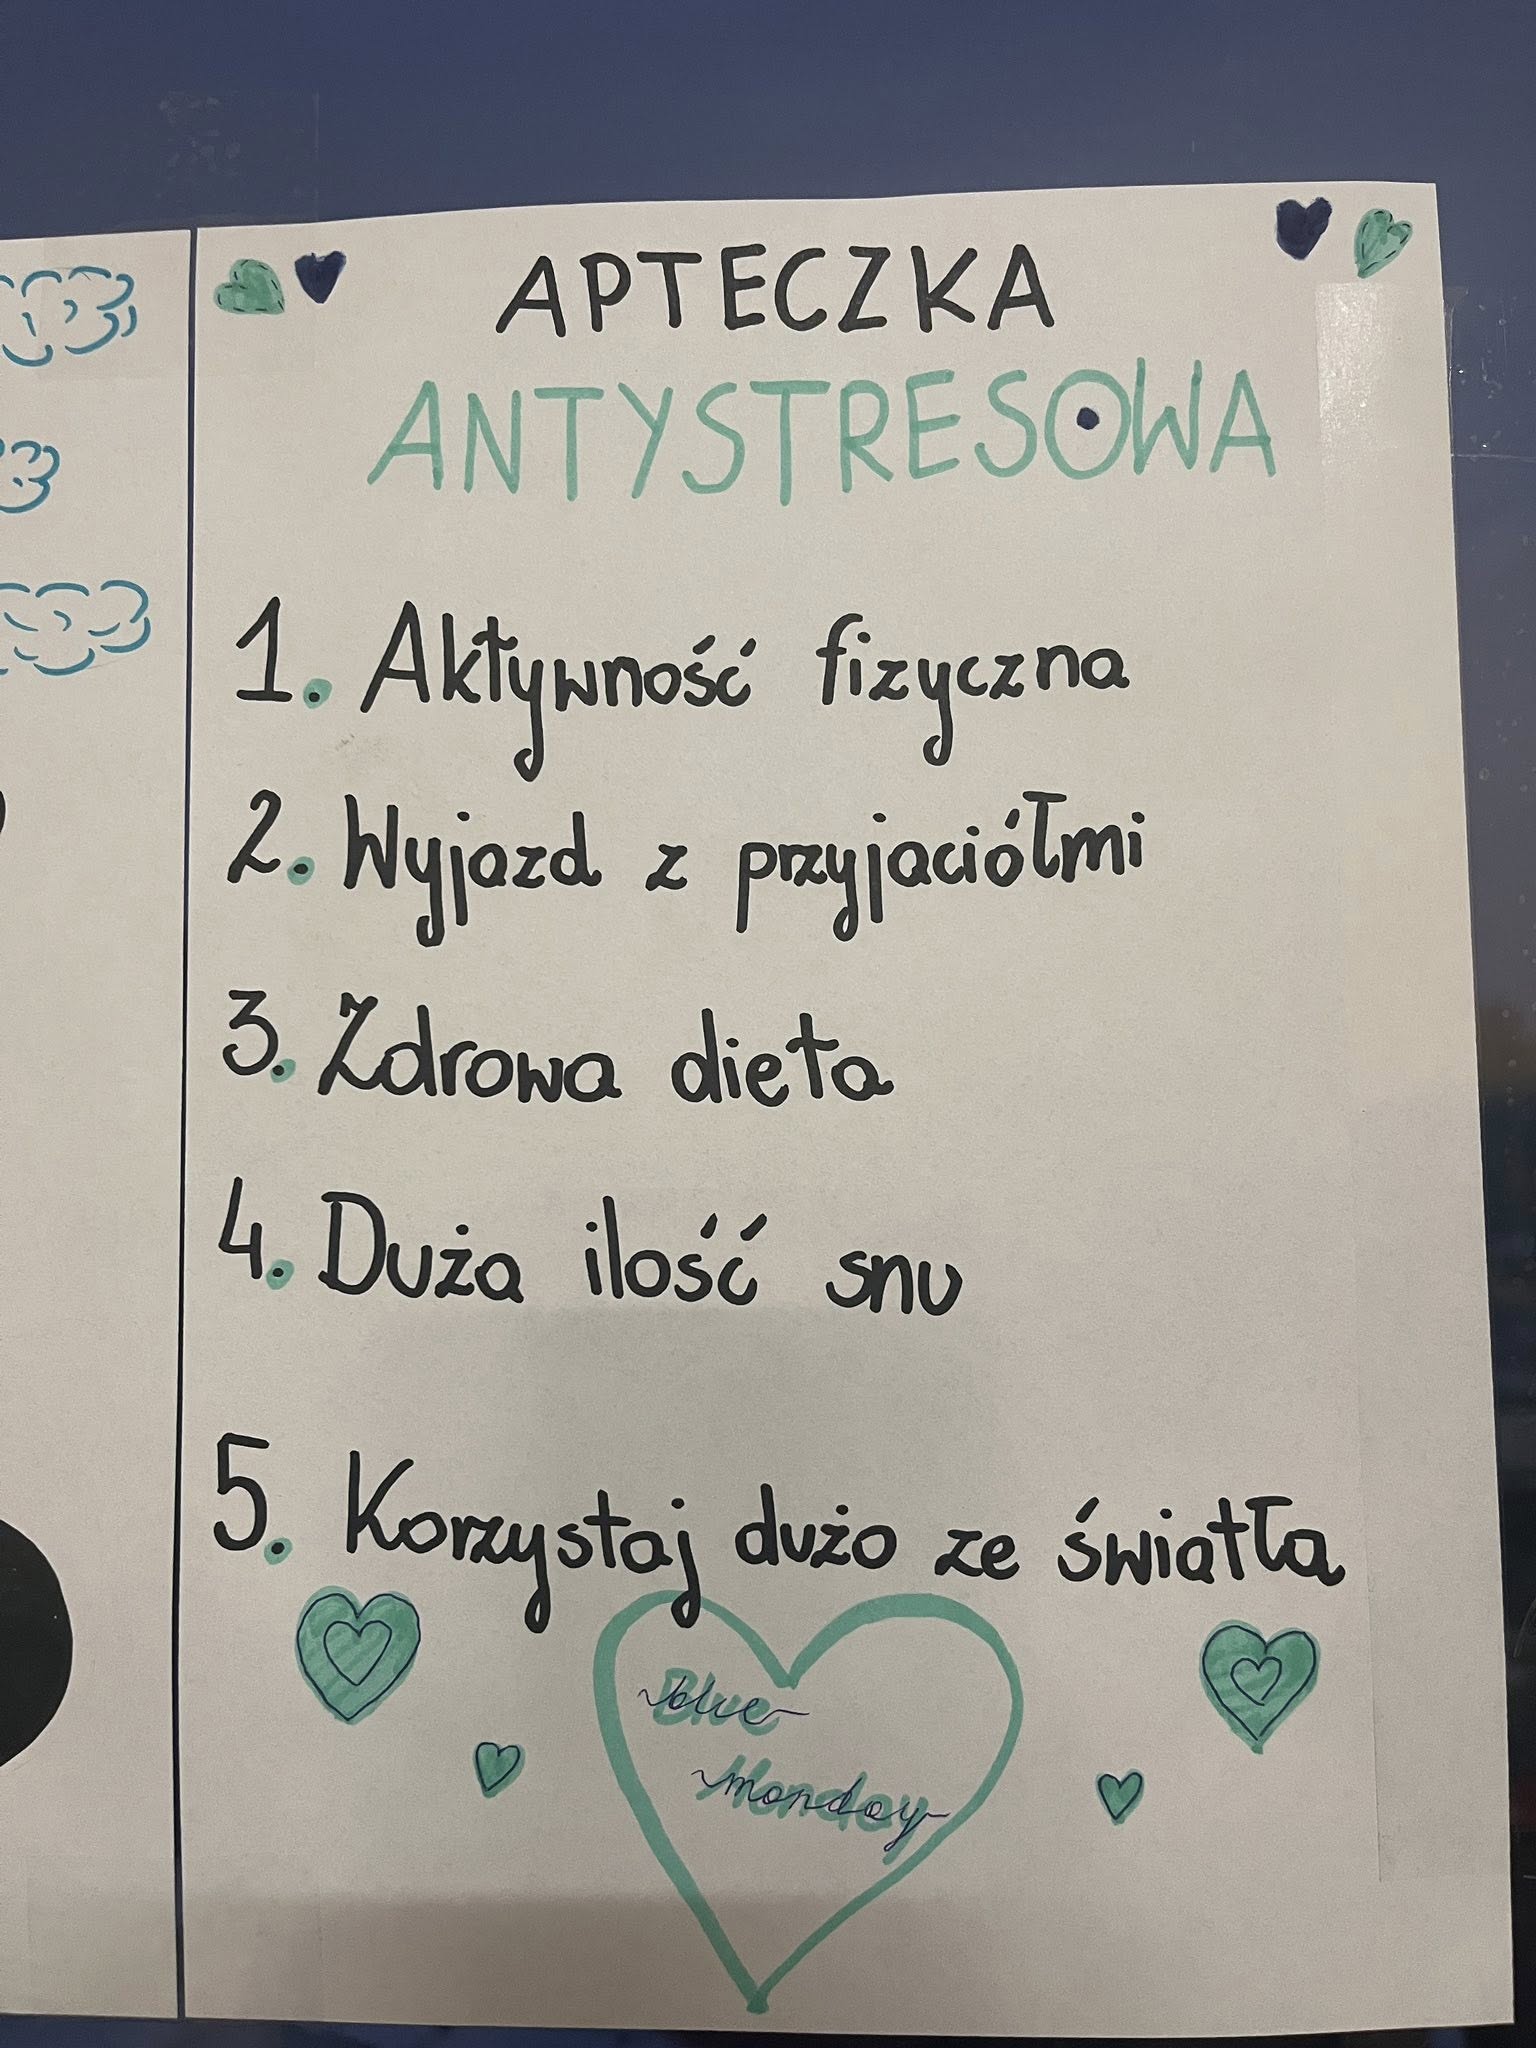 APTECZKA
ANTYSTRESOWA
1. Aktywność fizyczna
2. Wyjazd z przyjaciółmi
3. Zdrowa dieta
4. Duża ilość snu
5. Korzystaj dużo ze światła
~blue~
~monday~